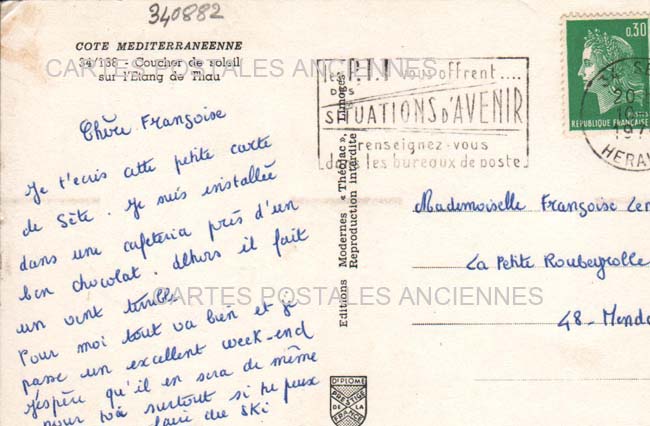 340882
COTE MEDITERRANEENNE
34/138 - Coucher de soleil
sur l'Etang de Thau
CARTES POSTALES ANCIENNES
Chère Françoise
Je t'écris cette petite carte
de Sète. Je suis installée
dans une cafeteria près d'un
bon chocolat. Dehors il fait
un vent terrible
Pour moi tout va bien et je
passe un excellent week-end
J'espère qu'il en sera de même
pour toi surtout si tu peux
faire du ski
Editions Modernes « Théojac », Limoges
Reproduction interdite
DIPLOME
PRESTIGE
DE LA
FRANCE
les P.T.T. vous offrent....
DES
SITUATIONS D'AVENIR
renseignez-vous
les bureaux de poste
0,30
REPUBLIQUE FRANÇAISE
34 SE
20
197
HERAU
Mademoiselle Françoise
La Petite Roubeyrolle
48 - Mende
CARTES POSTALES ANCIENNES